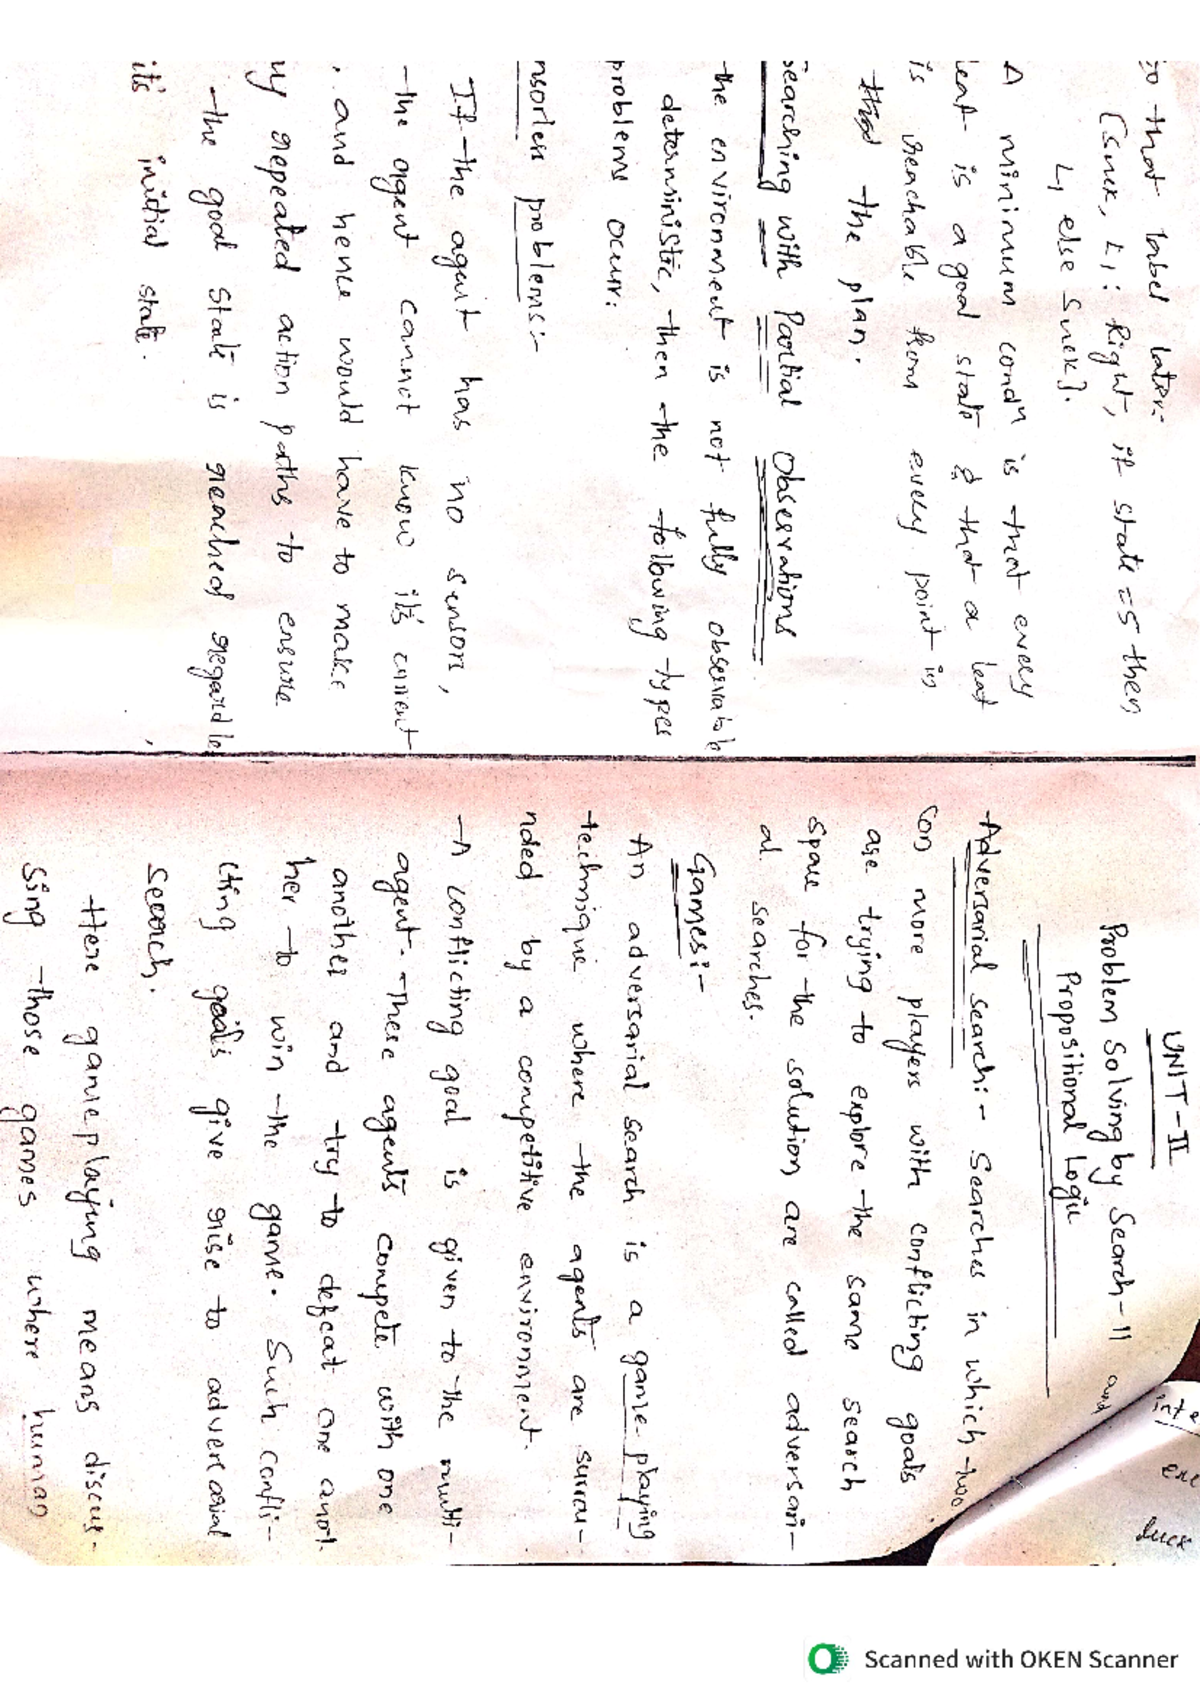 so that label later:-
[suck, L1: Right, if state = 5 then
L1 else suck].
A minimum condn is that every
leaf is a goal state & that a leaf
is reachable from every point in
the plan.
Searching with Partial Observations
the environment is not fully observable
deterministic, then the following types
problems occur:
nsorless problems:-
If the agent has no sensors,
the agent cannot know it's current
and hence would have to make
ny repeated action paths to ensure
the goal state is reached regardle
it's initial state.
UNIT-II
Problem Solving by Search-II and
Propositional Logic
Adversarial search:- Searches in which two
(or) more players with conflicting goals
are trying to explore the same search
space for the solution are called adversari-
al searches.
Games:-
An adversarial search is a game-playing
technique where the agents are surrou-
nded by a competitive environment.
-A conflicting goal is given to the multi-
agent. These agents compete with one
another and try to defeat one anot
her to win the game. Such confli-
cting goals give rise to adversarial
search.
Here game playing means discus-
sing those games where human
inte
exe
luck
Scanned with OKEN Scanner